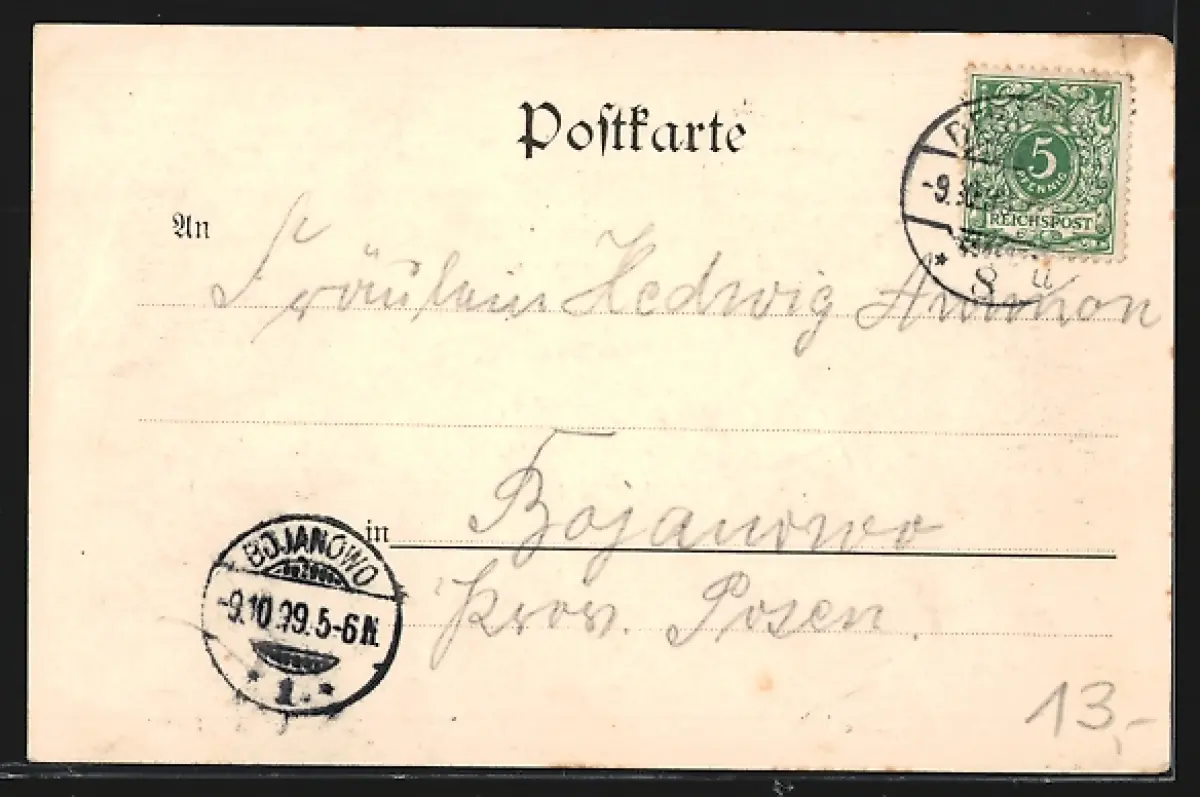 Postkarte
5
PFENNIG
REICHSPOST
-9.
8
An
Fräulein Hedwig Ammon
in Bojanowo
Prov. Posen.
BOJANOWO
-9.10.99.5-6N.
* 1. *
13,-